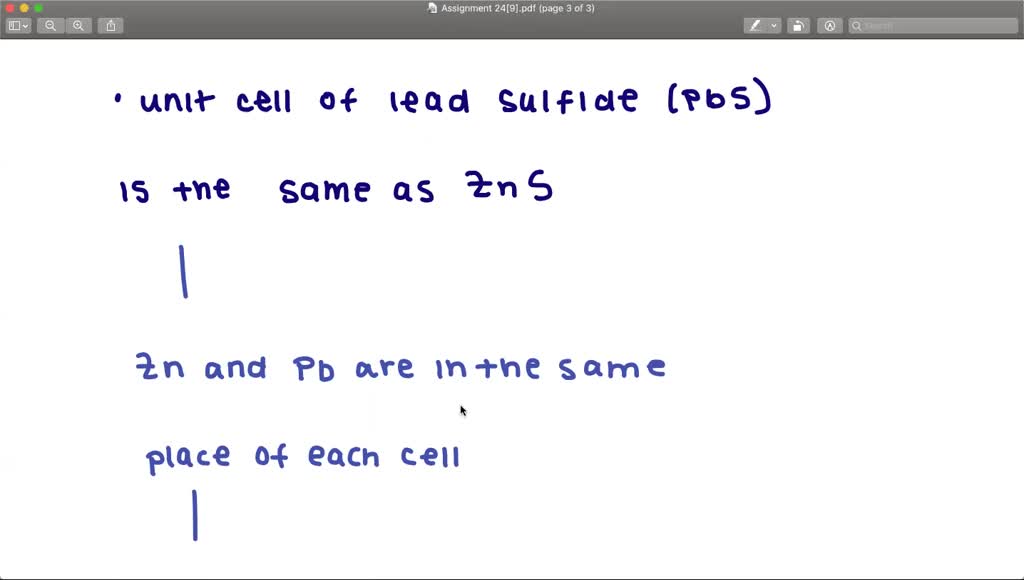 Assignment 24[9].pdf (page 3 of 3)
Search
• unit cell of lead sulfide (PbS)
is the same as ZnS
Zn and Pb are in the same
place of each cell